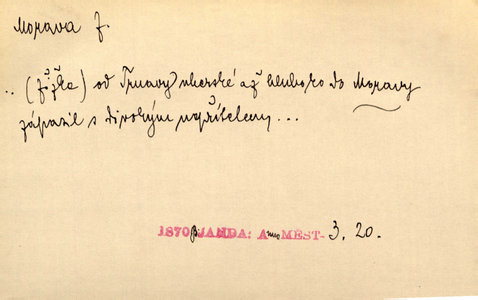 Morava f.
.. (žižka) od Trnavy uherské až hluboko do Moravy
zápasil s divokým nepřítelem ...
1870 JANDA: Anno MĚST- 3, 20.